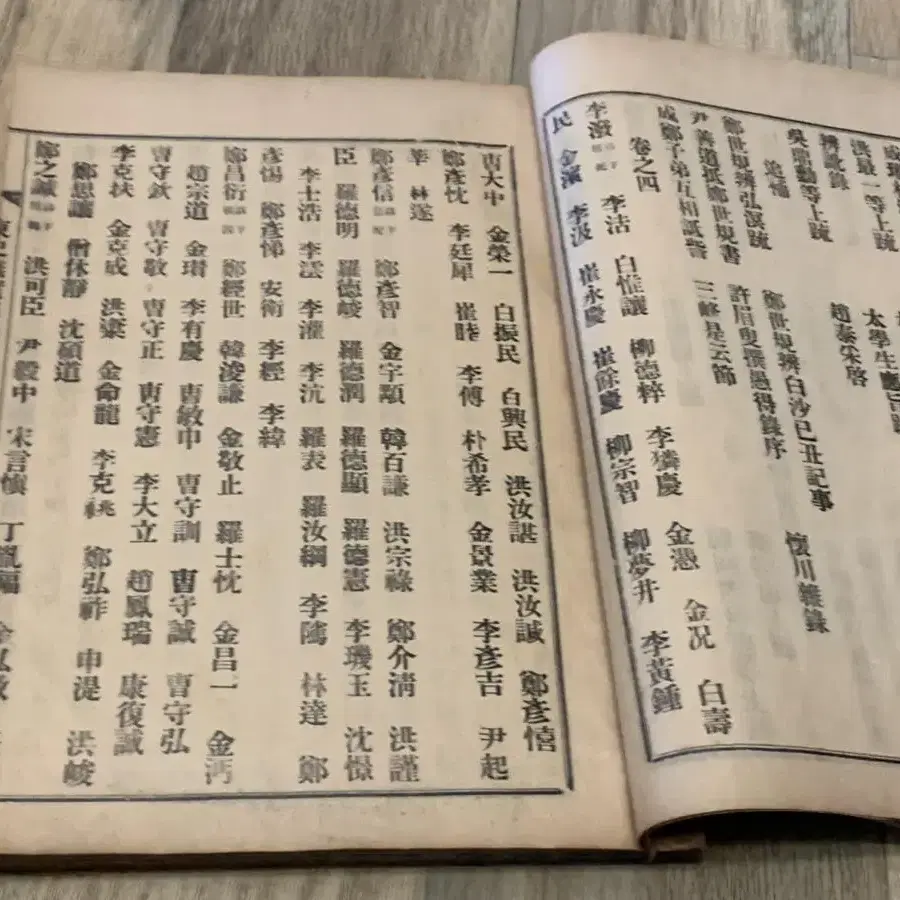 洪最一等上疏
辨訛錄 趙泰宋啓
等上疏
追補
鄭世規辨弘溟疏 鄭世規辨白沙已丑記事
尹善道抵鄭世規書 許眉叟撰過得錄序 懷川雜錄
成鄭子弟互相訛訾 三峰是云節
卷之四
李潑 李洁 白惟讓 柳德粹 李獜慶 金憑 金况 白壽
民 李汲 崔永慶 崔餘慶 柳宗智 柳夢井 李黃鍾
曺大中 金榮一 白振民 白興民 洪汝諶 洪汝誠 鄭彥憘
鄭彥忱 李廷犀 崔睦 李傅 朴希孝 金景業 李彥吉 尹起
莘 林遂
鄭彥信 鄭彥智 金宇顒 韓百謙 洪宗祿 鄭介淸 洪謹
臣 羅德明 羅德峻 羅德潤 羅德顯 羅德憲 李璣玉 沈憬
李士浩 李溠 李灌 李沆 羅表 羅汝綱 李隲 林達 鄭
彥惕 鄭彥悌 安衛 李經 李緯
鄭昌衍 鄭經世 韓浚謙 金敬止 羅士忱 金昌一 金沔
趙宗道 金瑨 李有慶 曺敏中 曺守訓 曺守誠 曺守弘
曺守欽 曺守敬 曺守正 曺守憲 李大立 趙鳳瑞 康復誠
李克扶 金克威 洪棐 金命龍 李克祧 鄭弘祚 申湜 洪峻
鄭思讓 僧休靜 沈碩道
鄭之諴 洪可臣 尹毅中 宋言愼